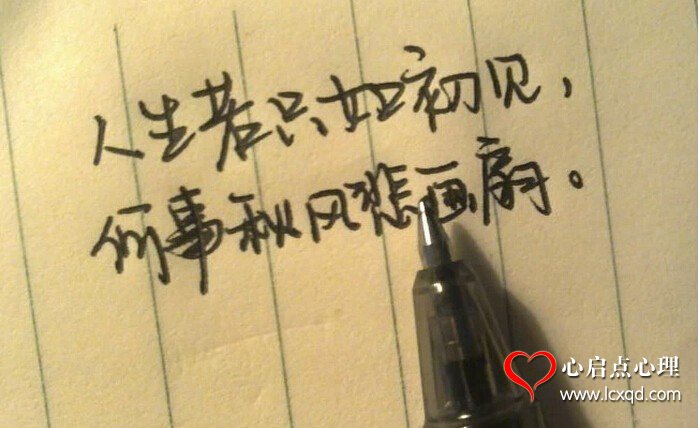 人生若只如初见，
何事秋风悲画扇。
心启点心理
www.lcxqd.com